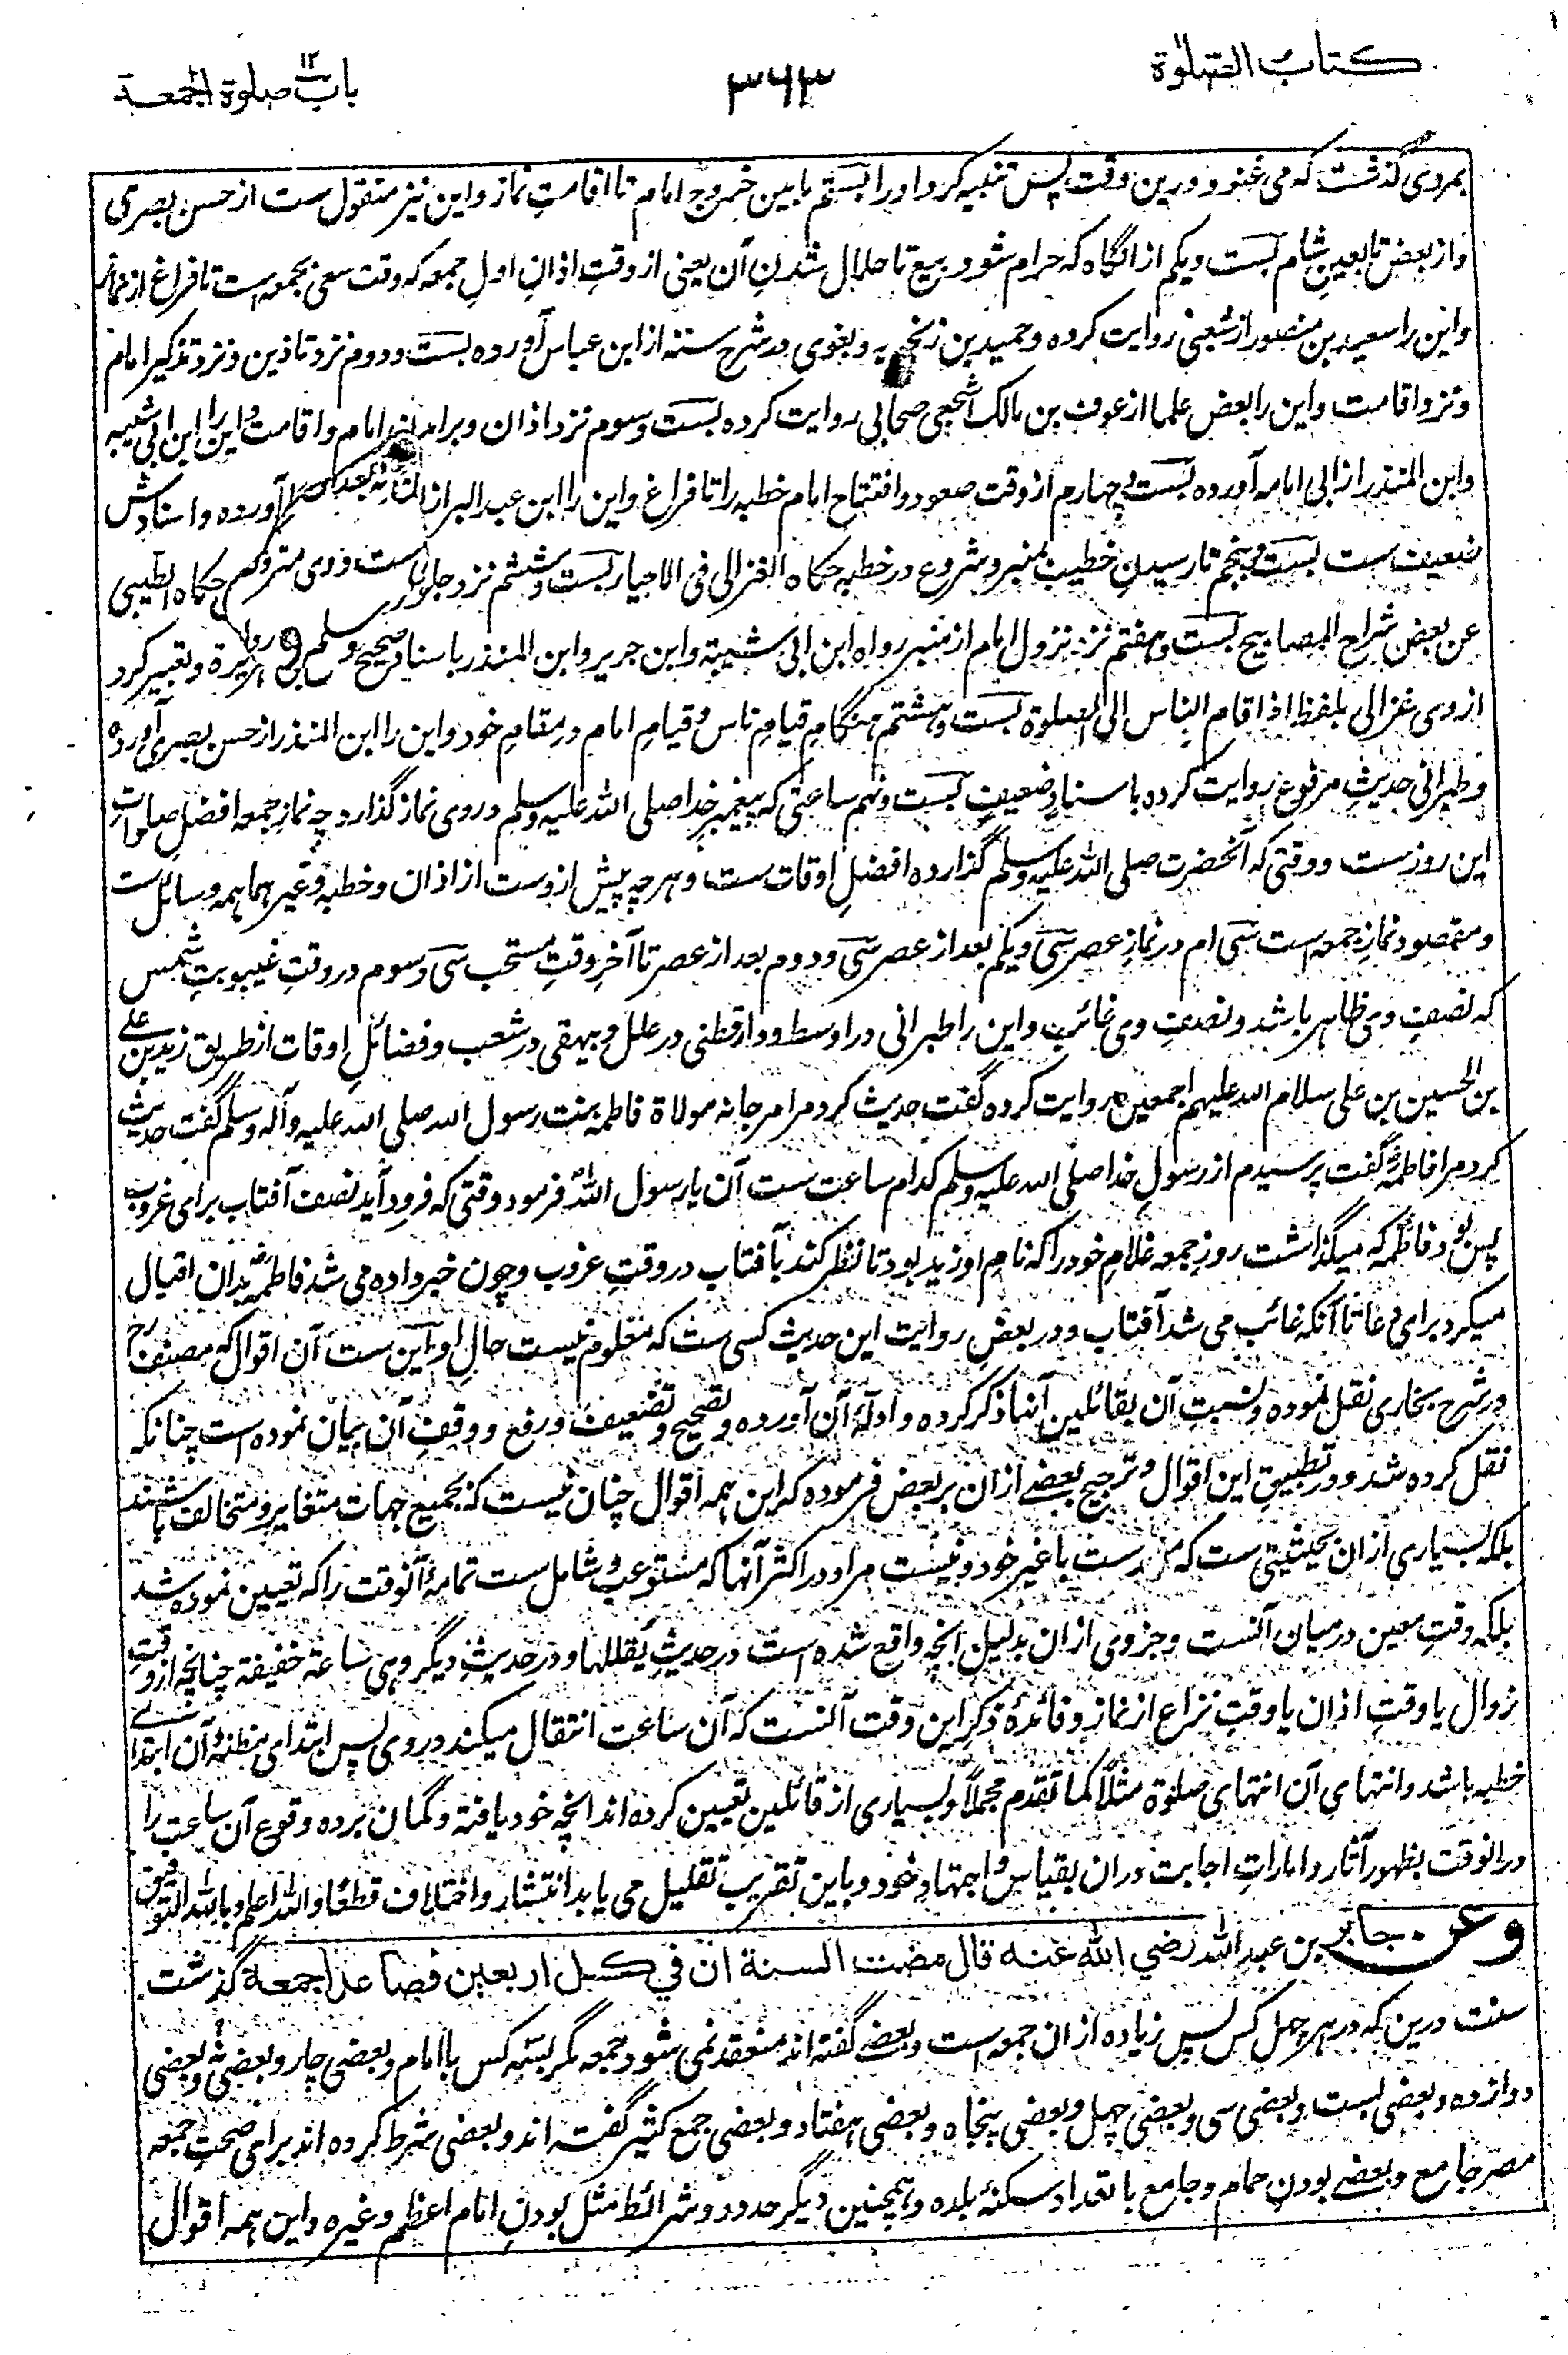 كتاب الصلوة
٣٦٣
باب١٢ صلوة الجمعة
بمردی گذشت که می غنود درین وقت پس تنبیه کرد او را بستم ما بین خروج امام تا اقامتِ نماز و این نیز منقول ست از حسن بصری
و از بعض تابعینِ شام بست و یکم از انگاه که حرام شود بیع تا حلال شدنِ آن یعنی از وقتِ اذانِ اولِ جمعه که وقت سعی بجمعه است تا فراغ از نماز
و این را سعید بن منصور از شعبی روایت کرده و حمید بن زنجویه و بغوی در شرح سنه از ابن عباس آورده بست و دوم نزد تاذین و نزد تذکیر امام
و نزد اقامت و این را بعض علما از عوف بن مالک اشجعی صحابی روایت کرده بست و سوم نزد اذان و برامدن امام و اقامت و این را ابن ابی شیبه
و ابن المنذر از ابی امامه آورده بست و چهارم از وقت صعود و افتتاح امام خطبه را تا فراغ و این را ابن عبد البر از آورده و اسنادش
ضعیف ست بست و پنجم تا رسیدنِ خطیب بمنبر و شروع در خطبه حکاه الغزالی فی الاحیا بست و ششم نزد جلوس حکاه الطیبی
عن بعض شراح المصابیح بست و هفتم نزد نزول امام از منبر رواه ابن ابی شیبة و ابن جریر و ابن المنذر باسناد صحیح و تعبیر کرد
از وی غزالی بلفظ اذا قام الناس الی الصلوة بست و هشتم هنگامِ قیامِ ناس و قیامِ امام در مقامِ خود و این را ابن المنذر از حسن بصری آورده
و طبرانی حدیثِ مرفوع روایت کرده باسنادِ ضعیف بست و نهم ساعتی که پیغمبرِ خدا صلی الله علیه وسلم در وی نماز گذارد چه نمازِ جمعه افضلِ صلواتِ
این روزست و وقتی که آنحضرت صلی الله علیه وسلم گذارده افضلِ اوقات ست و هر چه پیش ازوست از اذان و خطبه و غیرهما همه وسائل ست
و مقصود نمازِ جمعه است سی ام در نمازِ عصر سی و یکم بعد از عصر سی و دوم بعد از عصر تا آخرِ وقتِ مستحب سی و سوم در وقتِ غیبوبتِ شمس
که نصفِ وی ظاهر باشد و نصفِ وی غائب و این را طبرانی در اوسط و دارقطنی در علل و بیهقی در شعب و فضائلِ اوقات از طریق زید بن علی
بن الحسین بن علی سلام الله علیهم اجمعین روایت کرده گفت حدیث کرد مرا مرجانه مولاة فاطمه بنت رسول الله صلی الله علیه وآله وسلم گفت حدیث
کرد مرا فاطمه گفت پرسیدم از رسولِ خدا صلی الله علیه وسلم کدام ساعت ست آن یا رسول الله فرمود وقتی که فرود آید نصف آفتاب برای غروب
پس بود فاطمه که میگذاشت روزِ جمعه غلامِ خود را که نامِ او زید بود تا نظر کند بآفتاب در وقتِ غروب و چون خبر داده می شد فاطمه بدان اقبال
میکرد برای دعا تا آنکه غائب می شد آفتاب و در بعضِ روایت این حدیث کسی ست که معلوم نیست حالِ او این ست آن اقوال که مصنف رح
در شرح بخاری نقل نموده و نسبتِ آن بقائلین آنها ذکر کرده و ادلّهٔ آن آورده و تصحیح و تضعیف و رفع و وقفِ آن بیان نموده است چنانکه
نقل کرده شد و در تطبیقِ این اقوال و ترجیح بعضے از ان بر بعض فرموده که این همه اقوال چنان نیست که بجمیع جهات متغایر و متخالف باشند
بلکه بسیاری از ان بحیثیتی ست که ست با غیر خود و نیست مراد در اکثر آنها که مستوعب و شامل ست تمامهٔ آنوقت را که تعیین نموده شد
بلکه وقتِ معین درمیان آنست و جزوی از ان بدلیل انچه واقع شده است در حدیثِ یقللها و در حدیثِ دیگر وهی ساعة خفیفة چنانچه از وقتِ
زوال یا وقتِ اذان یا وقتِ فراغ از نماز و فائدهٔ ذکرِ این وقت آنست که آن ساعت انتقال میکند در وی پس ابتدای مظنهٔ آن ابتدای
خطبه باشد و انتهای آن انتهای صلوة مثلاً کما تقدم مجملاً و بسیاری از قائلین تعیین کرده اند انچه خود یافته و گمان برده وقوع آن ساعت را
درانوقت بظهور آثار و اماراتِ اجابت دران بقیاس و اجتهادِ خود و باین تقریب تقلیل می یابد انتشار و اختلاف قطعًا و الله اعلم و بالله التوفیق
وعن جابر بن عبد الله رضي الله عنه قال مضت السنة ان في كل اربعين فصاعدا جمعة گذشت
سنت درین که در هر چهل کس پس زیاده از ان جمعه است و بعضے گفته اند منعقد نمی شود جمعه مگر بسه کس با امام و بعضی چار و بعضی نه و بعضی
دوازده و بعضی بست و بعضی سی و بعضی چهل و بعضی پنجاه و بعضی هفتاد و بعضی جمع کثیر گفته اند و بعضی شرط کرده اند برای صحتِ جمعه
مصر جامع و بعضے بودنِ حمام و جامع با تعدادِ سکنهٔ بلده و همچنین دیگر حدود و شرائط مثل بودنِ امام اعظم و غیره و این همه اقوال